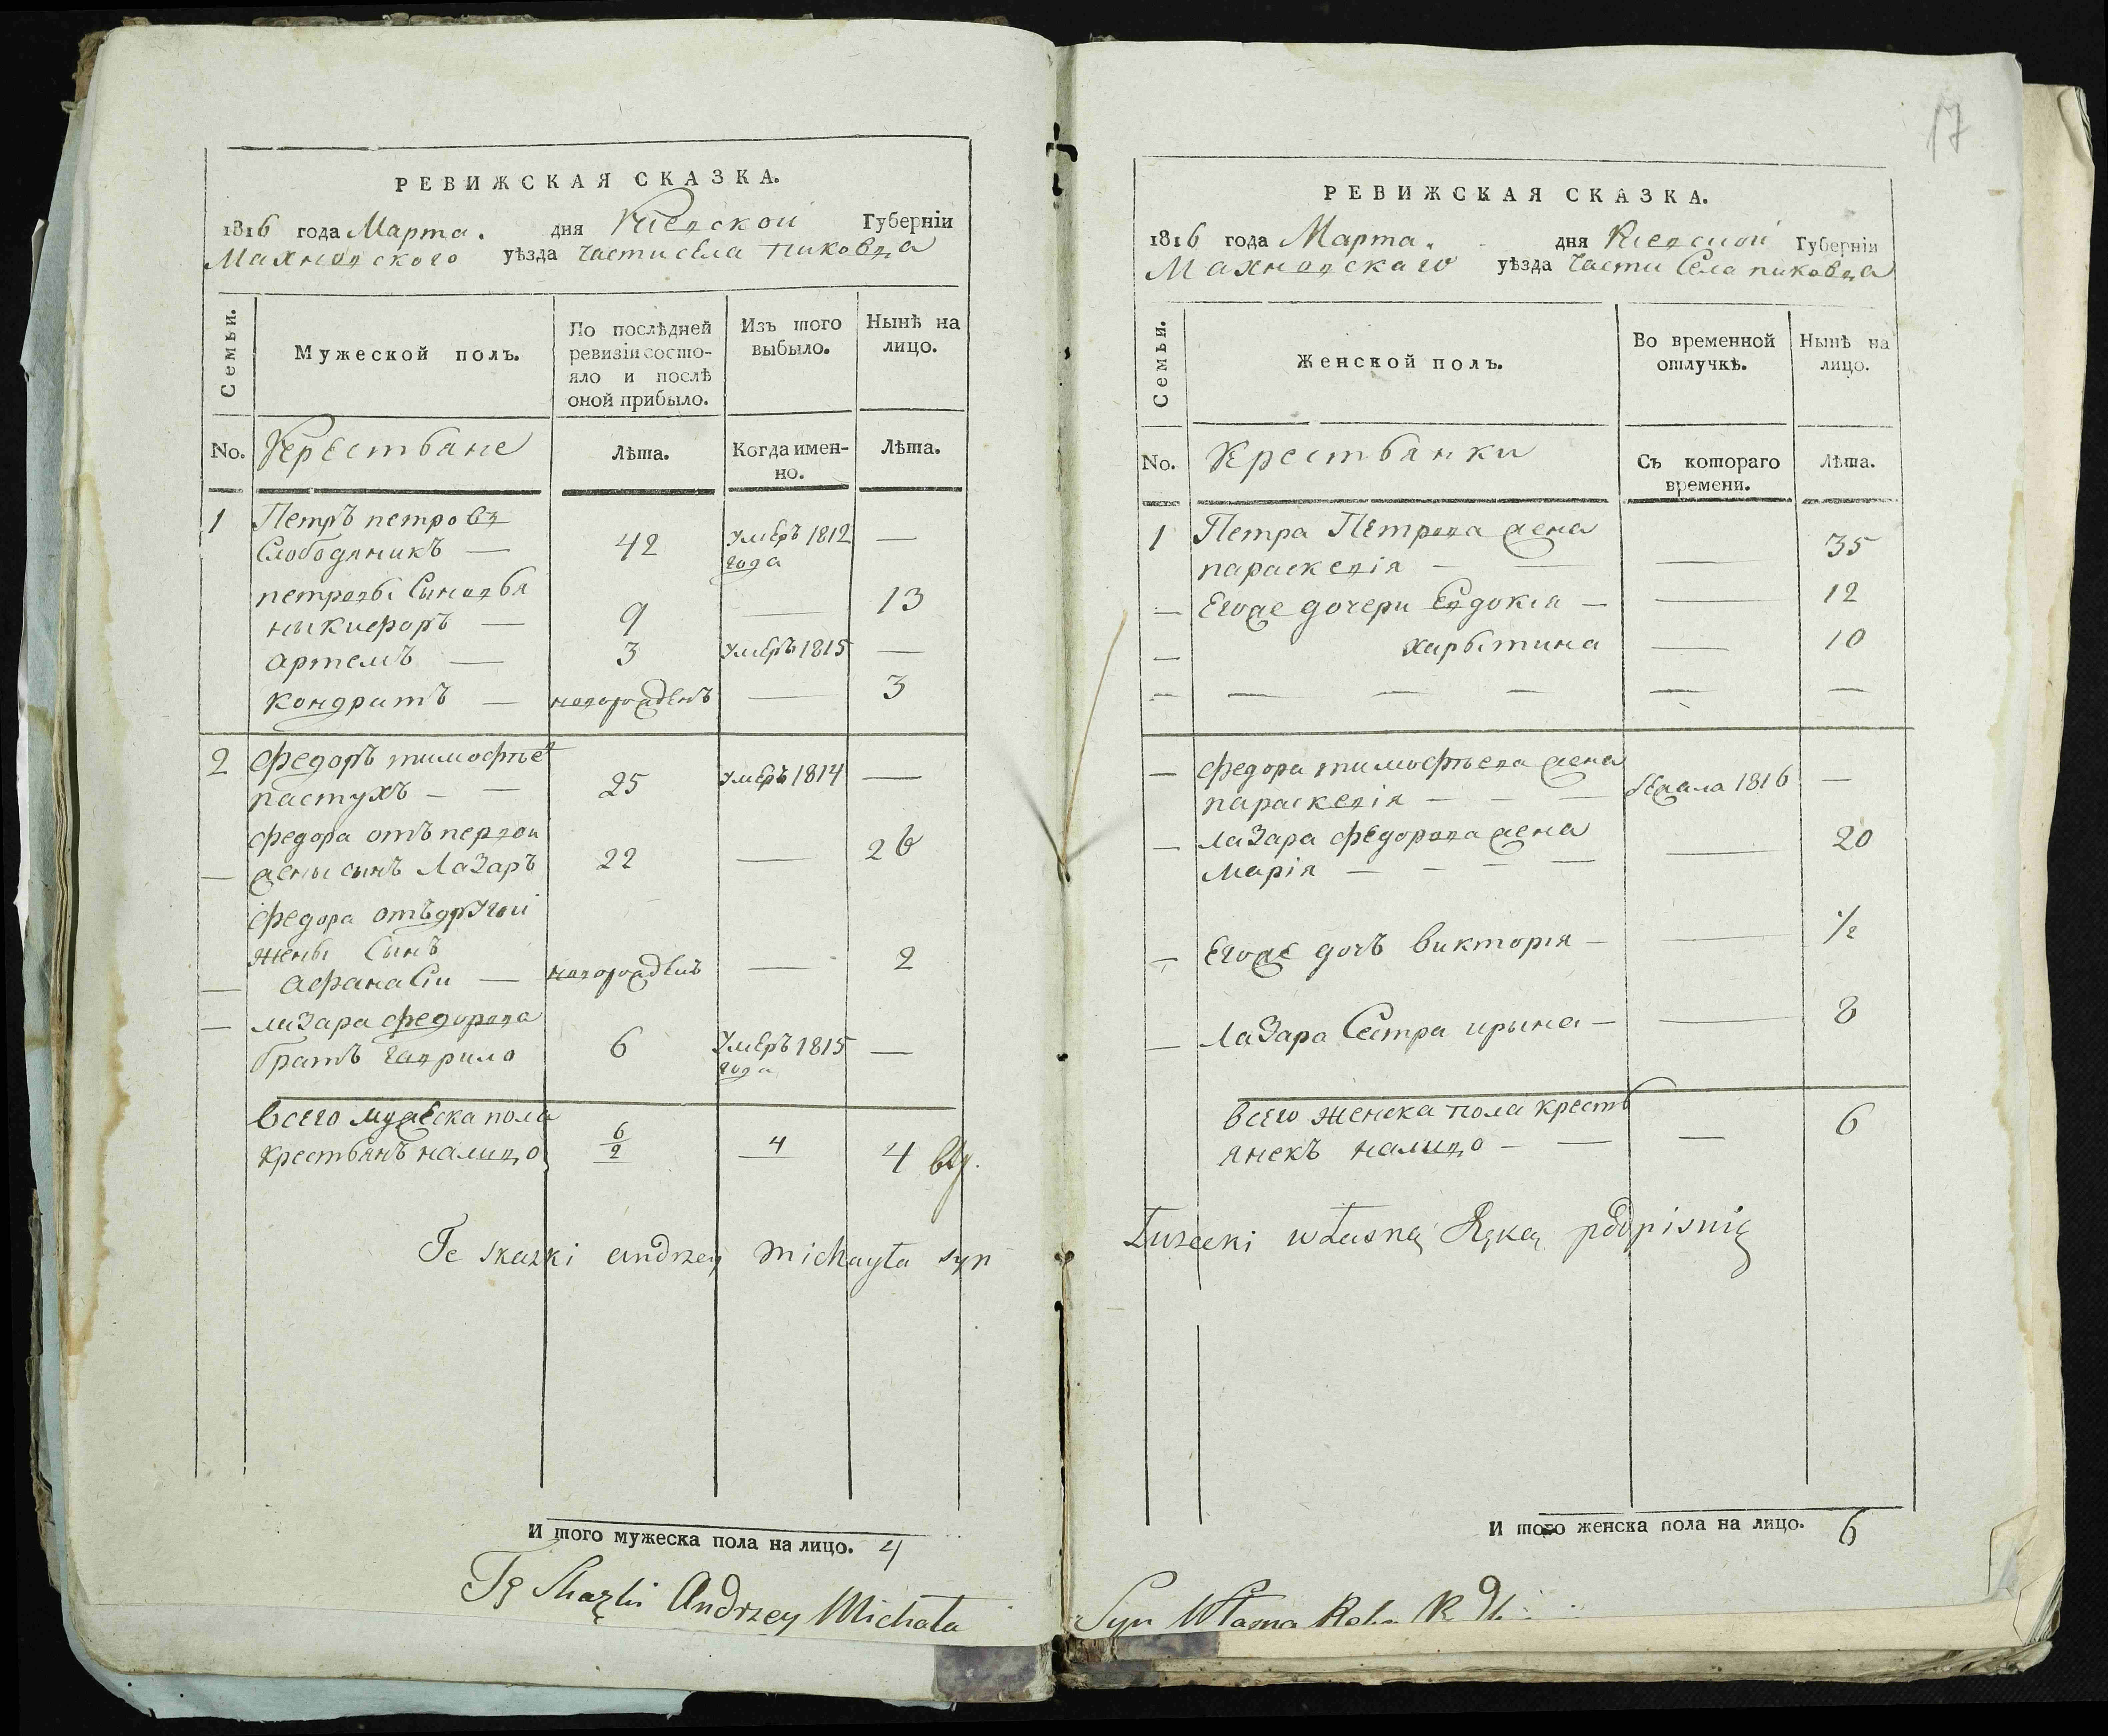 17
РЕВИЖСКАЯ СКАЗКА.
1816 года Марта. дня Киевской Губерніи
Махновского уѣзда части села пиковца
Семьи.
Мужеской полъ.
По послѣдней
ревизіи состо-
яло и послѣ
оной прибыло.
Изъ того
выбыло.
Нынѣ на
лицо.
No. Крестьяне
Лѣта.
Когда имен-
но.
Лѣта.
1 Петръ петровъ
Слободяникъ — 42 умеръ 1812 —
года
петровы Сыновья
никифоръ — 9 — 13
артемъ — 3 умеръ 1815 —
кондратъ — новорожденъ — 3
2 федоръ тимофѣев
пастухъ — — 25 умеръ 1814 —
федора отъ первои
— жены сынъ Лазаръ 22 — 26
федора отъ другои
жены Сынъ
— афанасіи — новорожденъ — 2
— лазара федорова
братъ гаврило 6 умеръ 1815 —
года
всего мужеска пола
крестьянъ налицо 6/2 4 4
Te skazki andrzey michayła syn
И того мужеска пола на лицо. 4
Te Skazki Andrzey Michała
РЕВИЖСКАЯ СКАЗКА.
1816 года Марта. дня Киевской Губерніи
Махновскаго уѣзда части Села пиковца
Семьи.
Женской полъ.
Во временной
отлучкѣ.
Нынѣ на
лицо.
No. Крестьянки
Съ котораго
времени.
Лѣта.
1 Петра Петрова жена
параскевія — — — 35
— Егоже дочери Евдокія — — 12
— харытина — 10
— — — — — —
— федора тимофѣева жена
параскевія — — — бежала 1816 —
— лазара федорова жена
Марія — — — — 20
— Егоже дочъ викторія — — 1/2
— лазара Сестра ирына — — 8
всего женска пола кресть
янекъ налицо — — — 6
Turecki własną Ręką pódpisuię
И того женска пола на лицо. 6
Syn Własną